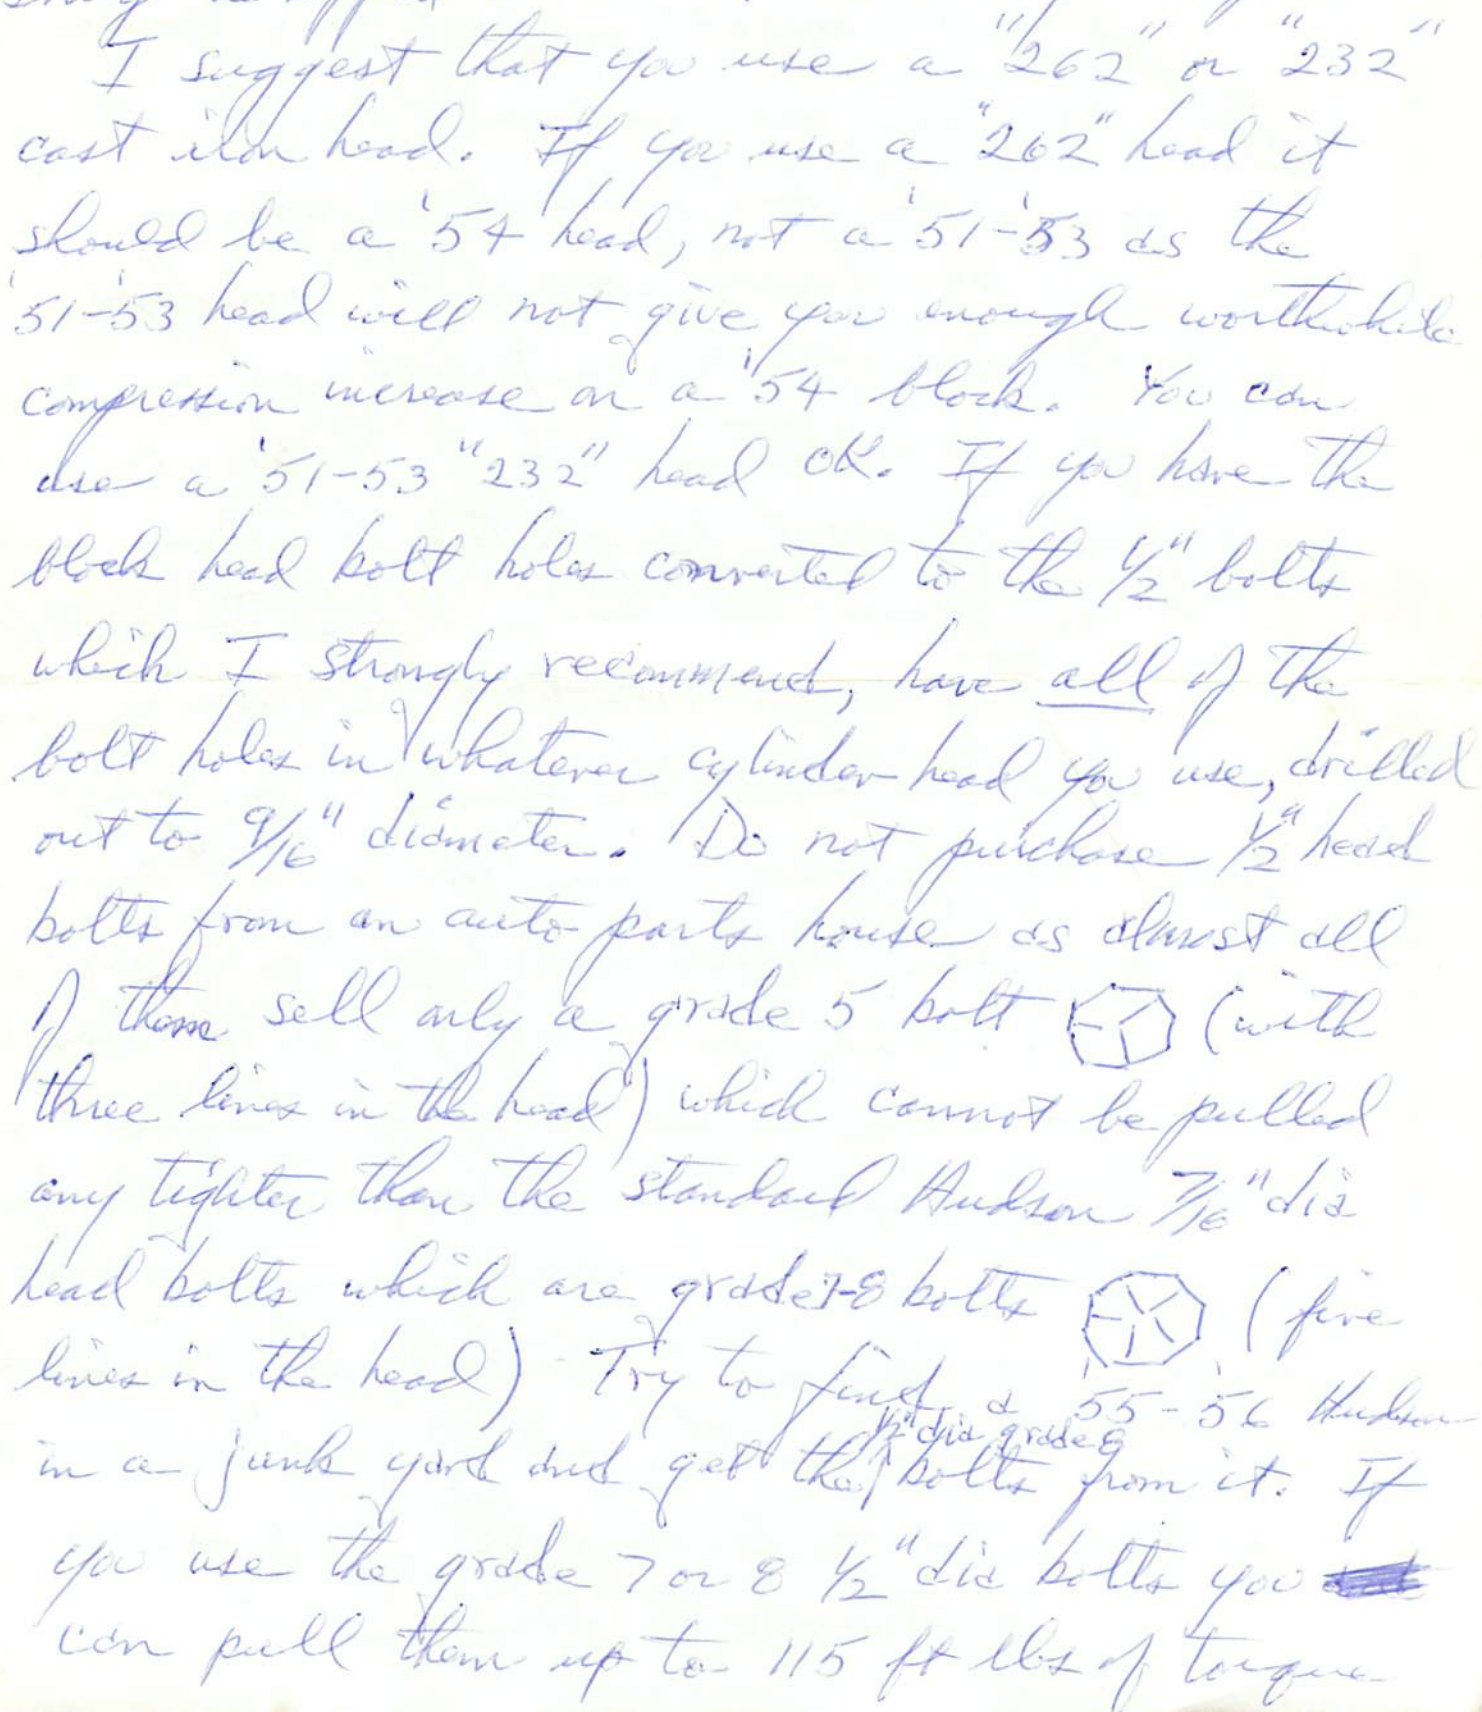 I suggest that you use a "262" or "232"
cast iron head. If you use a "262" head it
should be a '54 head, not a '51-'53 as the
'51-'53 head will not give you enough worthwhile
compression increase on a '54 block. You can
use a '51-53 "232" head OK. If you have the
block head bolt holes converted to the 1/2" bolts
which I strongly recommend, have all of the
bolt holes in whatever cylinder head you use, drilled
out to 9/16" diameter. Do not purchase 1/2" head
bolts from an auto parts house as almost all
of them sell only a grade 5 bolt (with
three lines in the head) which cannot be pulled
any tighter than the standard Hudson 7/16" dia
head bolts which are grade 7-8 bolts (five
lines in the head) Try to find a '55-'56 Hudson
1/2" dia grade 8
in a junk yard and get the bolts from it. If
you use the grade 7 or 8 1/2" dia bolts you
can pull them up to 115 ft lbs of torque